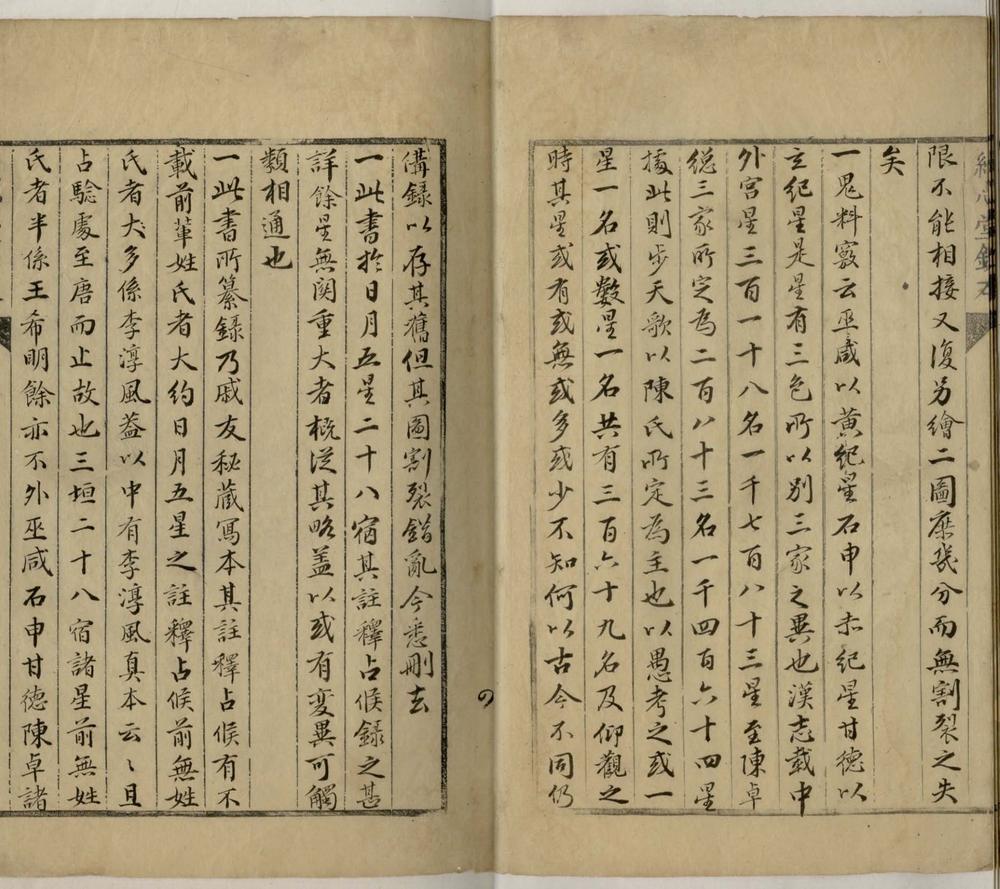 限不能相接又復另繪二圖庶幾分而無割裂之失
矣
一鬼料竅云巫咸以黃紀星石申以赤紀星甘德以
玄紀星是星有三色所以別三家之異也漢志載中
外宮星三百一十八名一千七百八十三星至陳卓
總三家所定為二百八十三名一千四百六十四星
據此則步天歌以陳氏所定為主也以愚考之或一
星一名或數星一名共有三百六十九名及仰觀之
時其星或有或無或多或少不知何以古今不同仍
備錄以存其舊但其圖割裂錯亂今悉刪去
一此書於日月五星二十八宿其註釋占候錄之甚
詳餘星無関重大者概從其略蓋以或有変異可觸
類相通也
一此書所纂錄乃戚友秘藏寫本其註釋占候有不
載前輩姓氏者大約日月五星之註釋占候前無姓
氏者大多係李淳風葢以中有李淳風真本云〻且
占驗處至唐而止故也三垣二十八宿諸星前無姓
氏者半係王希明餘亦不外巫咸石申甘德陳卓諸